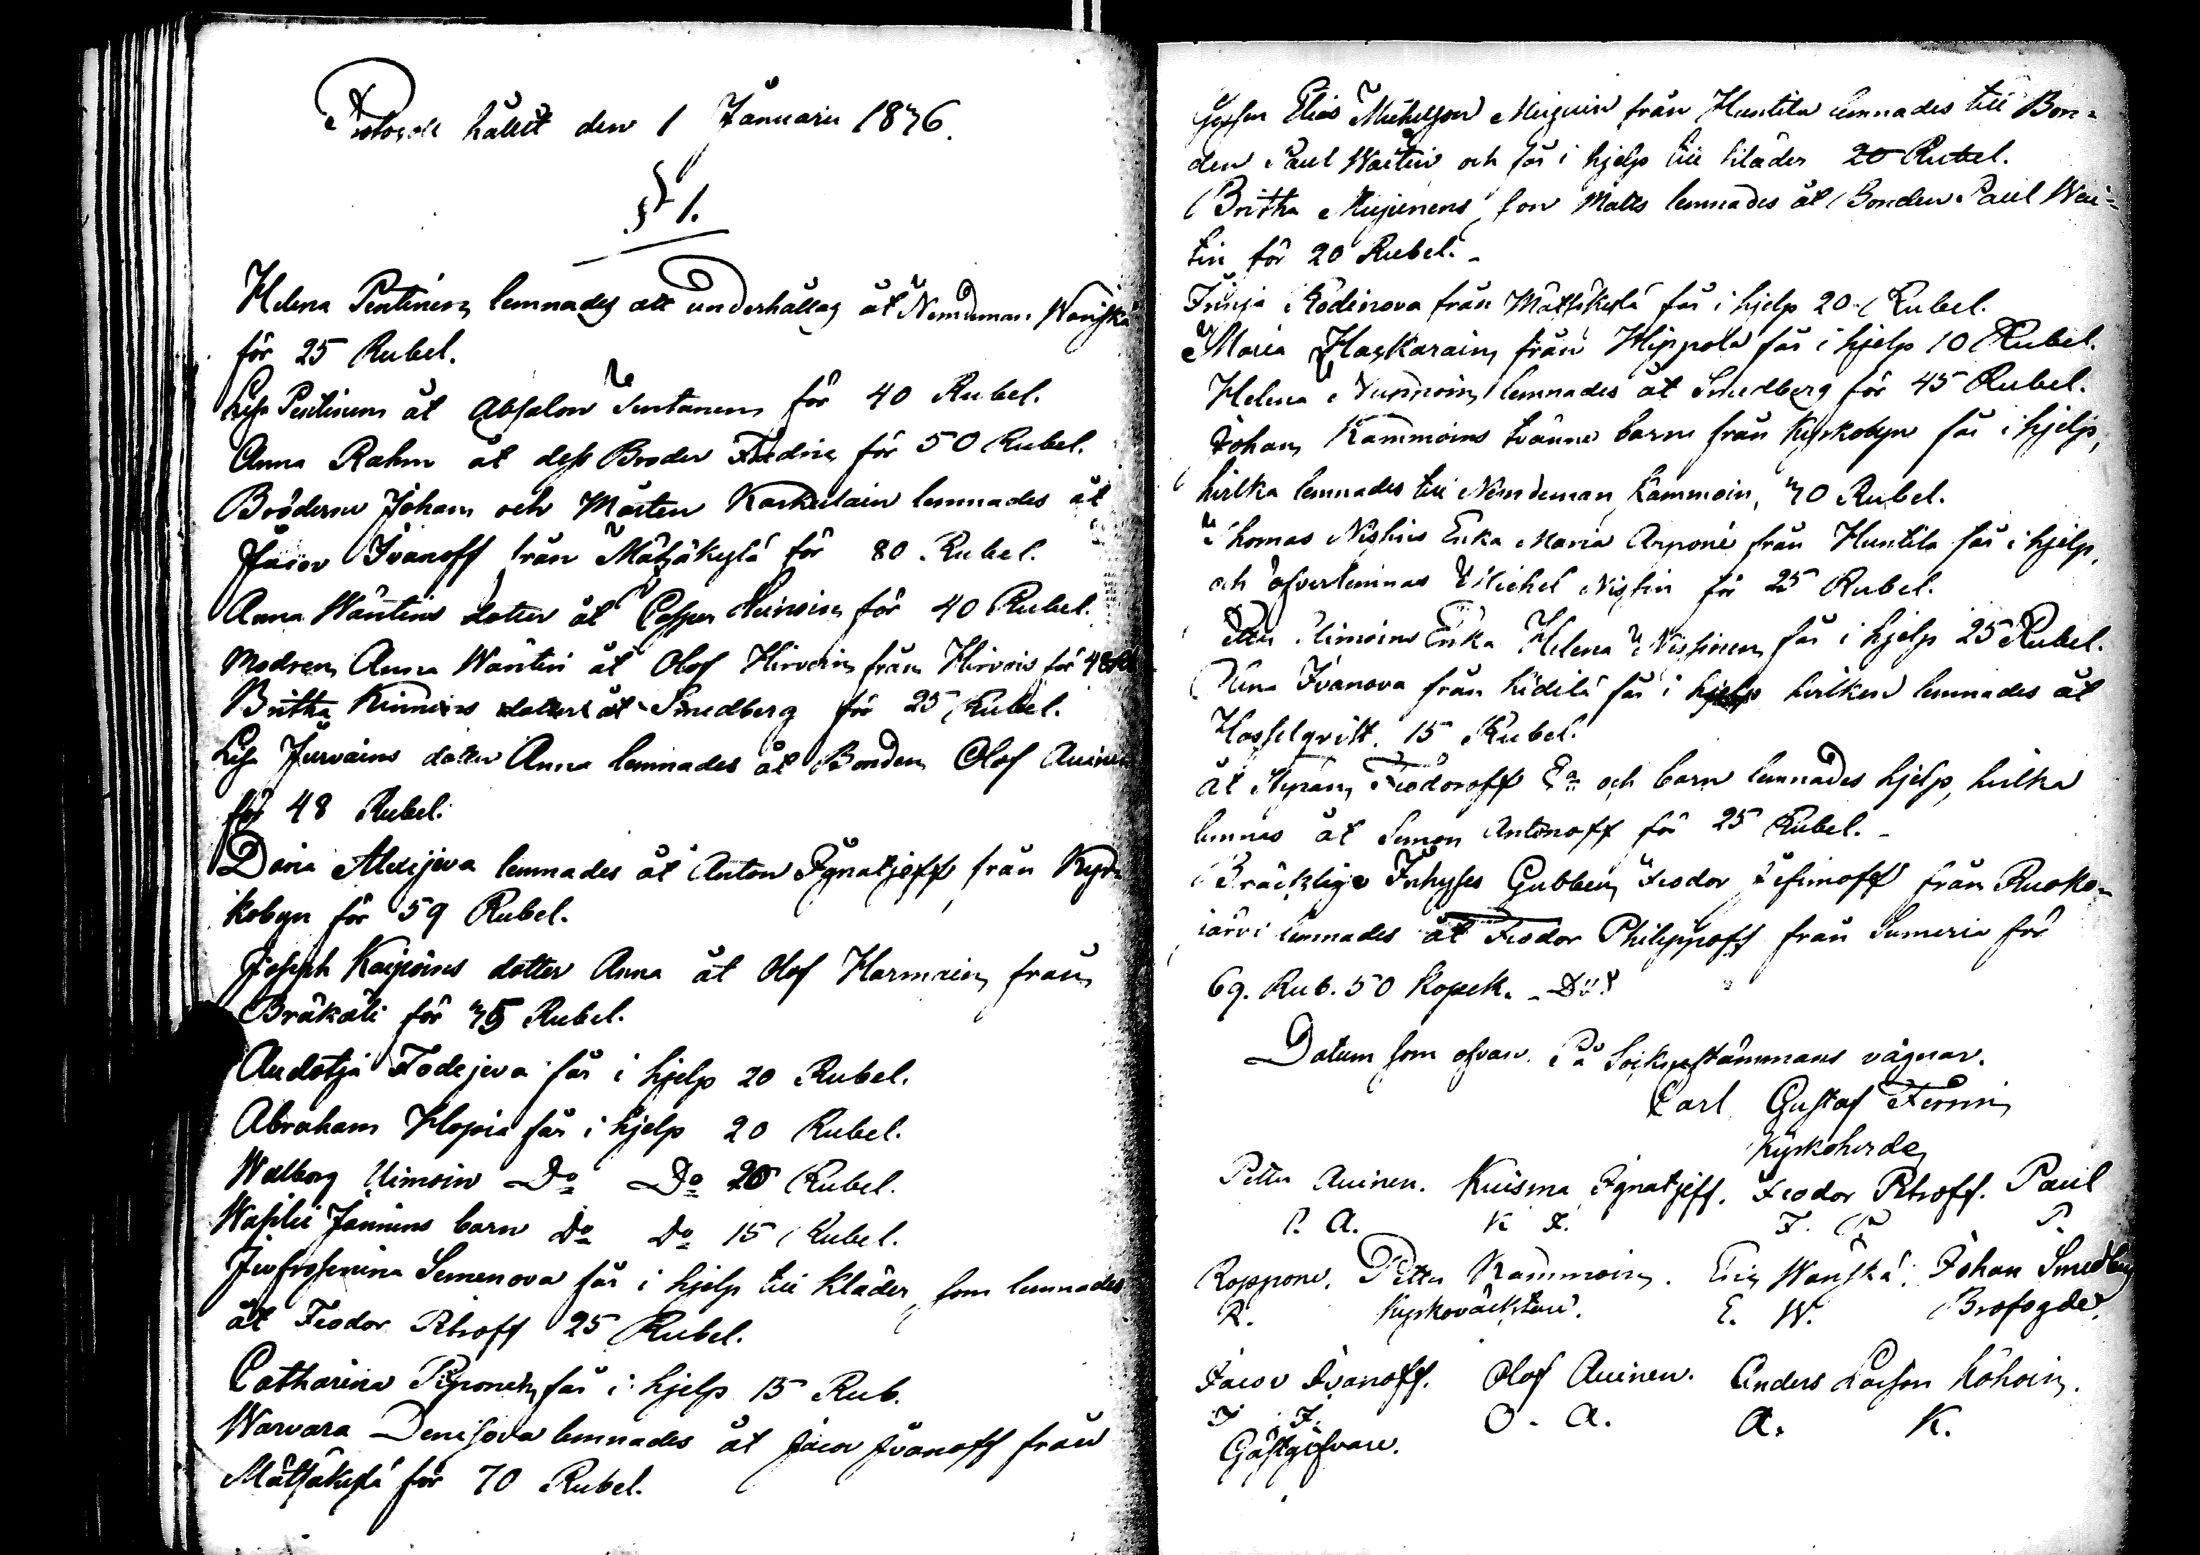 Protocoll hållit den 1 Januarii 1836.
§ 1.
Helena Pentinen lemnades att underhållas åt Nemdeman Wanska
för 25 Rubel.
Lisa Pentinens åt Absalon Sentanen för 40 Rubel.
Anna Rahm åt dess Broder Fredric för 50 Rubel.
Bröderne Johan och Mårten Karkulain lemnades åt
Jacov Ivanoff från Mätsäkylä för 80 Rubel.
Anna Wäntins dotter åt Casper Heinoin för 40 Rubel.
Modren Anna Wäntin åt Olof Hirvoin från Hirvois för 48
Britha Kinnins dotter åt Smedberg för 25 Rubel.
Lisa Jurvains dotter Anna lemnades åt Bonden Olof Auinen
för 48 Rubel.
Daria Alexijeva lemnades åt Anton Ignatjeff från Kyr-
kobyn för 59 Rubel.
Joseph Kaipoins dotter Anna åt Olof Harmain från
Bräkäli för 75 Rubel.
Audotja Fodejeva får i hjelp 20 Rubel.
Abraham Hopia får i hjelp 20 Rubel.
Walborg Uimoin Do Do 20 Rubel.
Wasilii Jannins barn Do Do 15 Rubel.
Jevfrosenina Semenova får i hjelp till kläder, som lemnades
åt Feodor Petroff 25 Rubel.
Catharina Piponen får i hjelp 15 Rub.
Warvara Denisova lemnades åt Jacov Ivanoff från
Mätsäkylä för 70 Rubel.
Gossen Elias Michelson Mujuin från Huntila lemnades till Bon-
den Paul Waitin och får i hjelp till kläder 20 Rubel.
Britha Mujunens son Matts lemnades åt Bonden Paul Wai-
tin för 20 Rubel.
Irinja Rodinova från Mätsäkylä får i hjelp 20 Rubel.
Maria Haskarain från Hippola får i hjelp 10 Rubel.
Helena Nummoin lemnades åt Smedberg för 45 Rubel.
Johan Kammoins tvänne barn från Kyrkobyn får i hjelp,
hvilka lemnades till Nemdeman Kammoin, 70 Rubel.
Thomas Nissins Enka Maria Arponé från Huntila får i hjelp,
och öfverlemnas Michel Nissin för 25 Rubel.
Petter Uimoins Enka Helena Nissinen får i hjelp 25 Rubel.
Nina Ivanova från Kidilä får i hjelp hvilken lemnades åt
Hasselqvist 15 Rubel.
åt Feodoroff och barn lemnades hjelp, hvilka
lemnas åt Semon Antonoff för 25 Rubel.
Bräcklige Inhyses Gubben Feodor Jefimoff från Ruoko-
järvi lemnades åt Feodor Philippoff från Sumeria för
69. Rub. 50 kopek.
Datum som ofvan. På Sockenstämmans vägnar.
Carl Gustaf
Kyrkoherde
Petter Auinen. Kuisma Ignatjeff. Feodor Petroff. Paul
P. A. K I. F. P. P.
Roppone. Petter Kammoin. Eric Wanska. Johan Smedberg
R. Kyrkoväcktare. E. W. Brofogde.
Jacov Ivanoff. Olof Auinen. Anders Larsson Kohoin.
J I. O. A. A. K.
Gästgifvare.